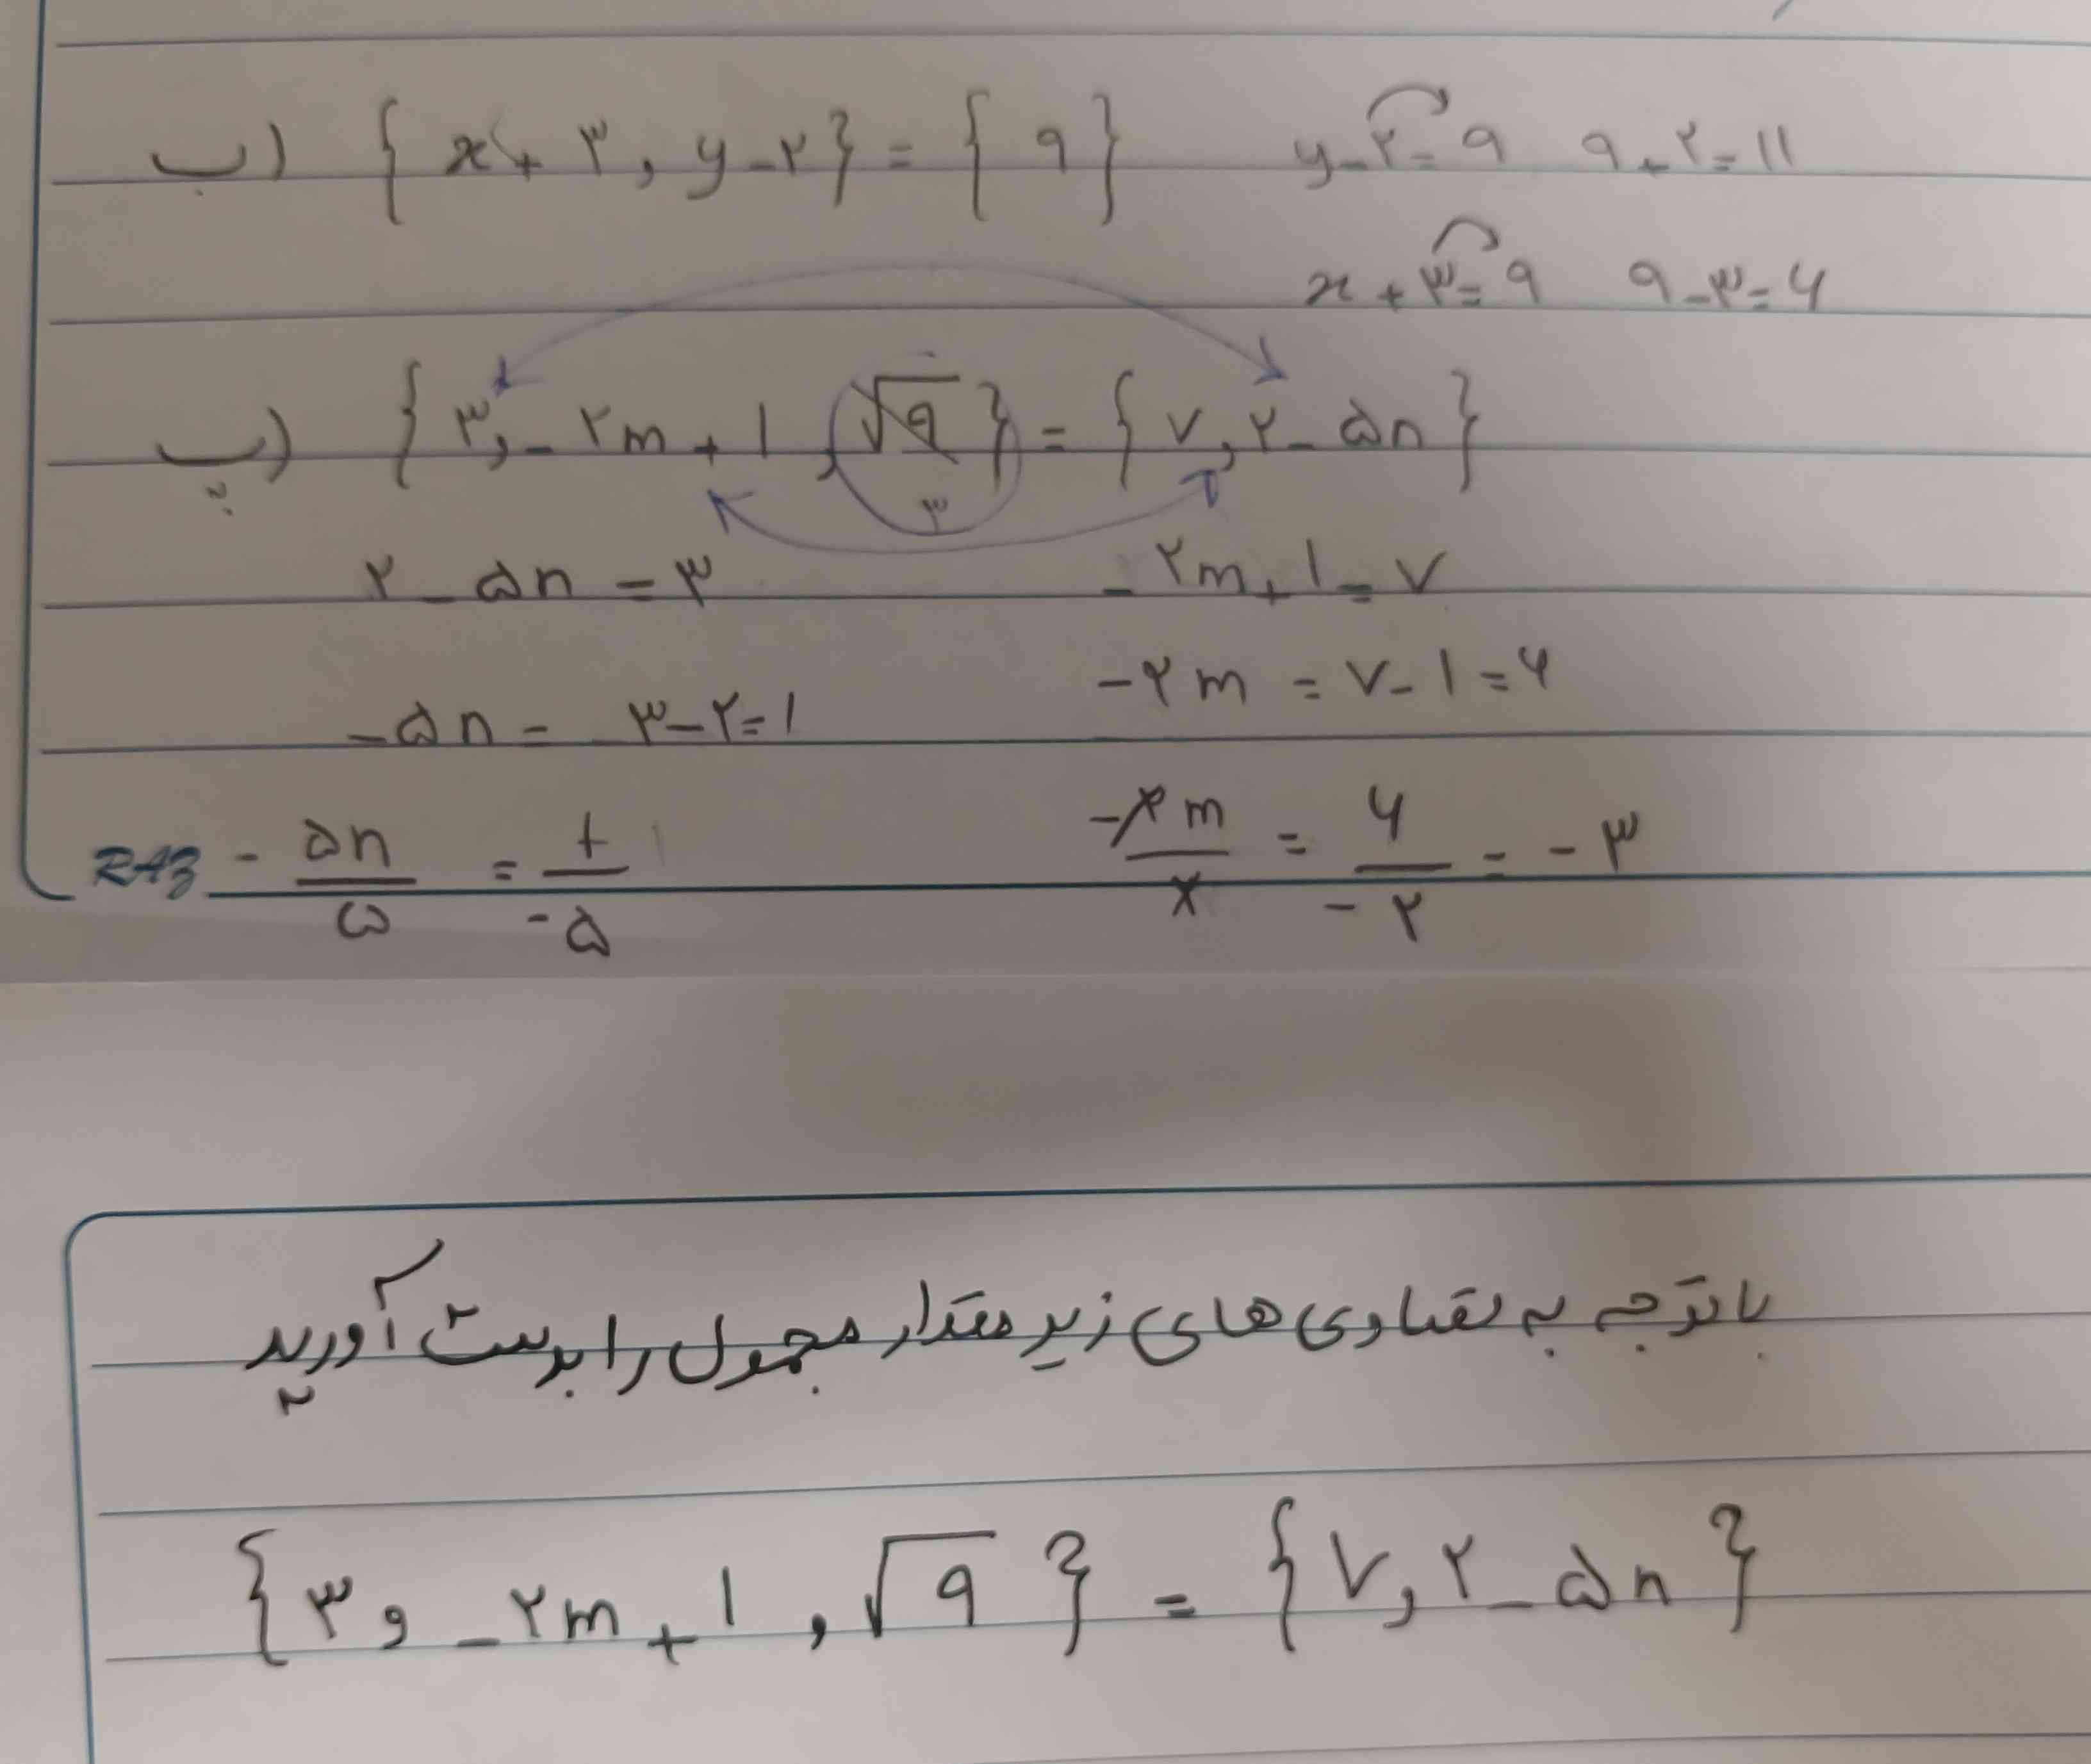 ب) { x + ۳ , y - ۲ } = { ۹ }    y - ۲ = ۹    ۹ + ۲ = ۱۱
x + ۳ = ۹    ۹ - ۳ = ۶
پ) { ۳ , - ۲m + ۱ , √۹ } = { ۷ , ۲ - ۵n }
۳
۲ - ۵n = ۳    - ۲m + ۱ = ۷
-۲m = ۷ - ۱ = ۶
- ۵n = ۳ - ۲ = ۱
RAZ - ۵n/۵ = ۱/-۵    -۲m/۲ = ۶/-۲ = -۳
با توجه به تساوی های زیر مقدار مجهول را بدست آورید
{ ۳ و - ۲m + ۱ , √۹ } = { ۷ , ۲ - ۵n }